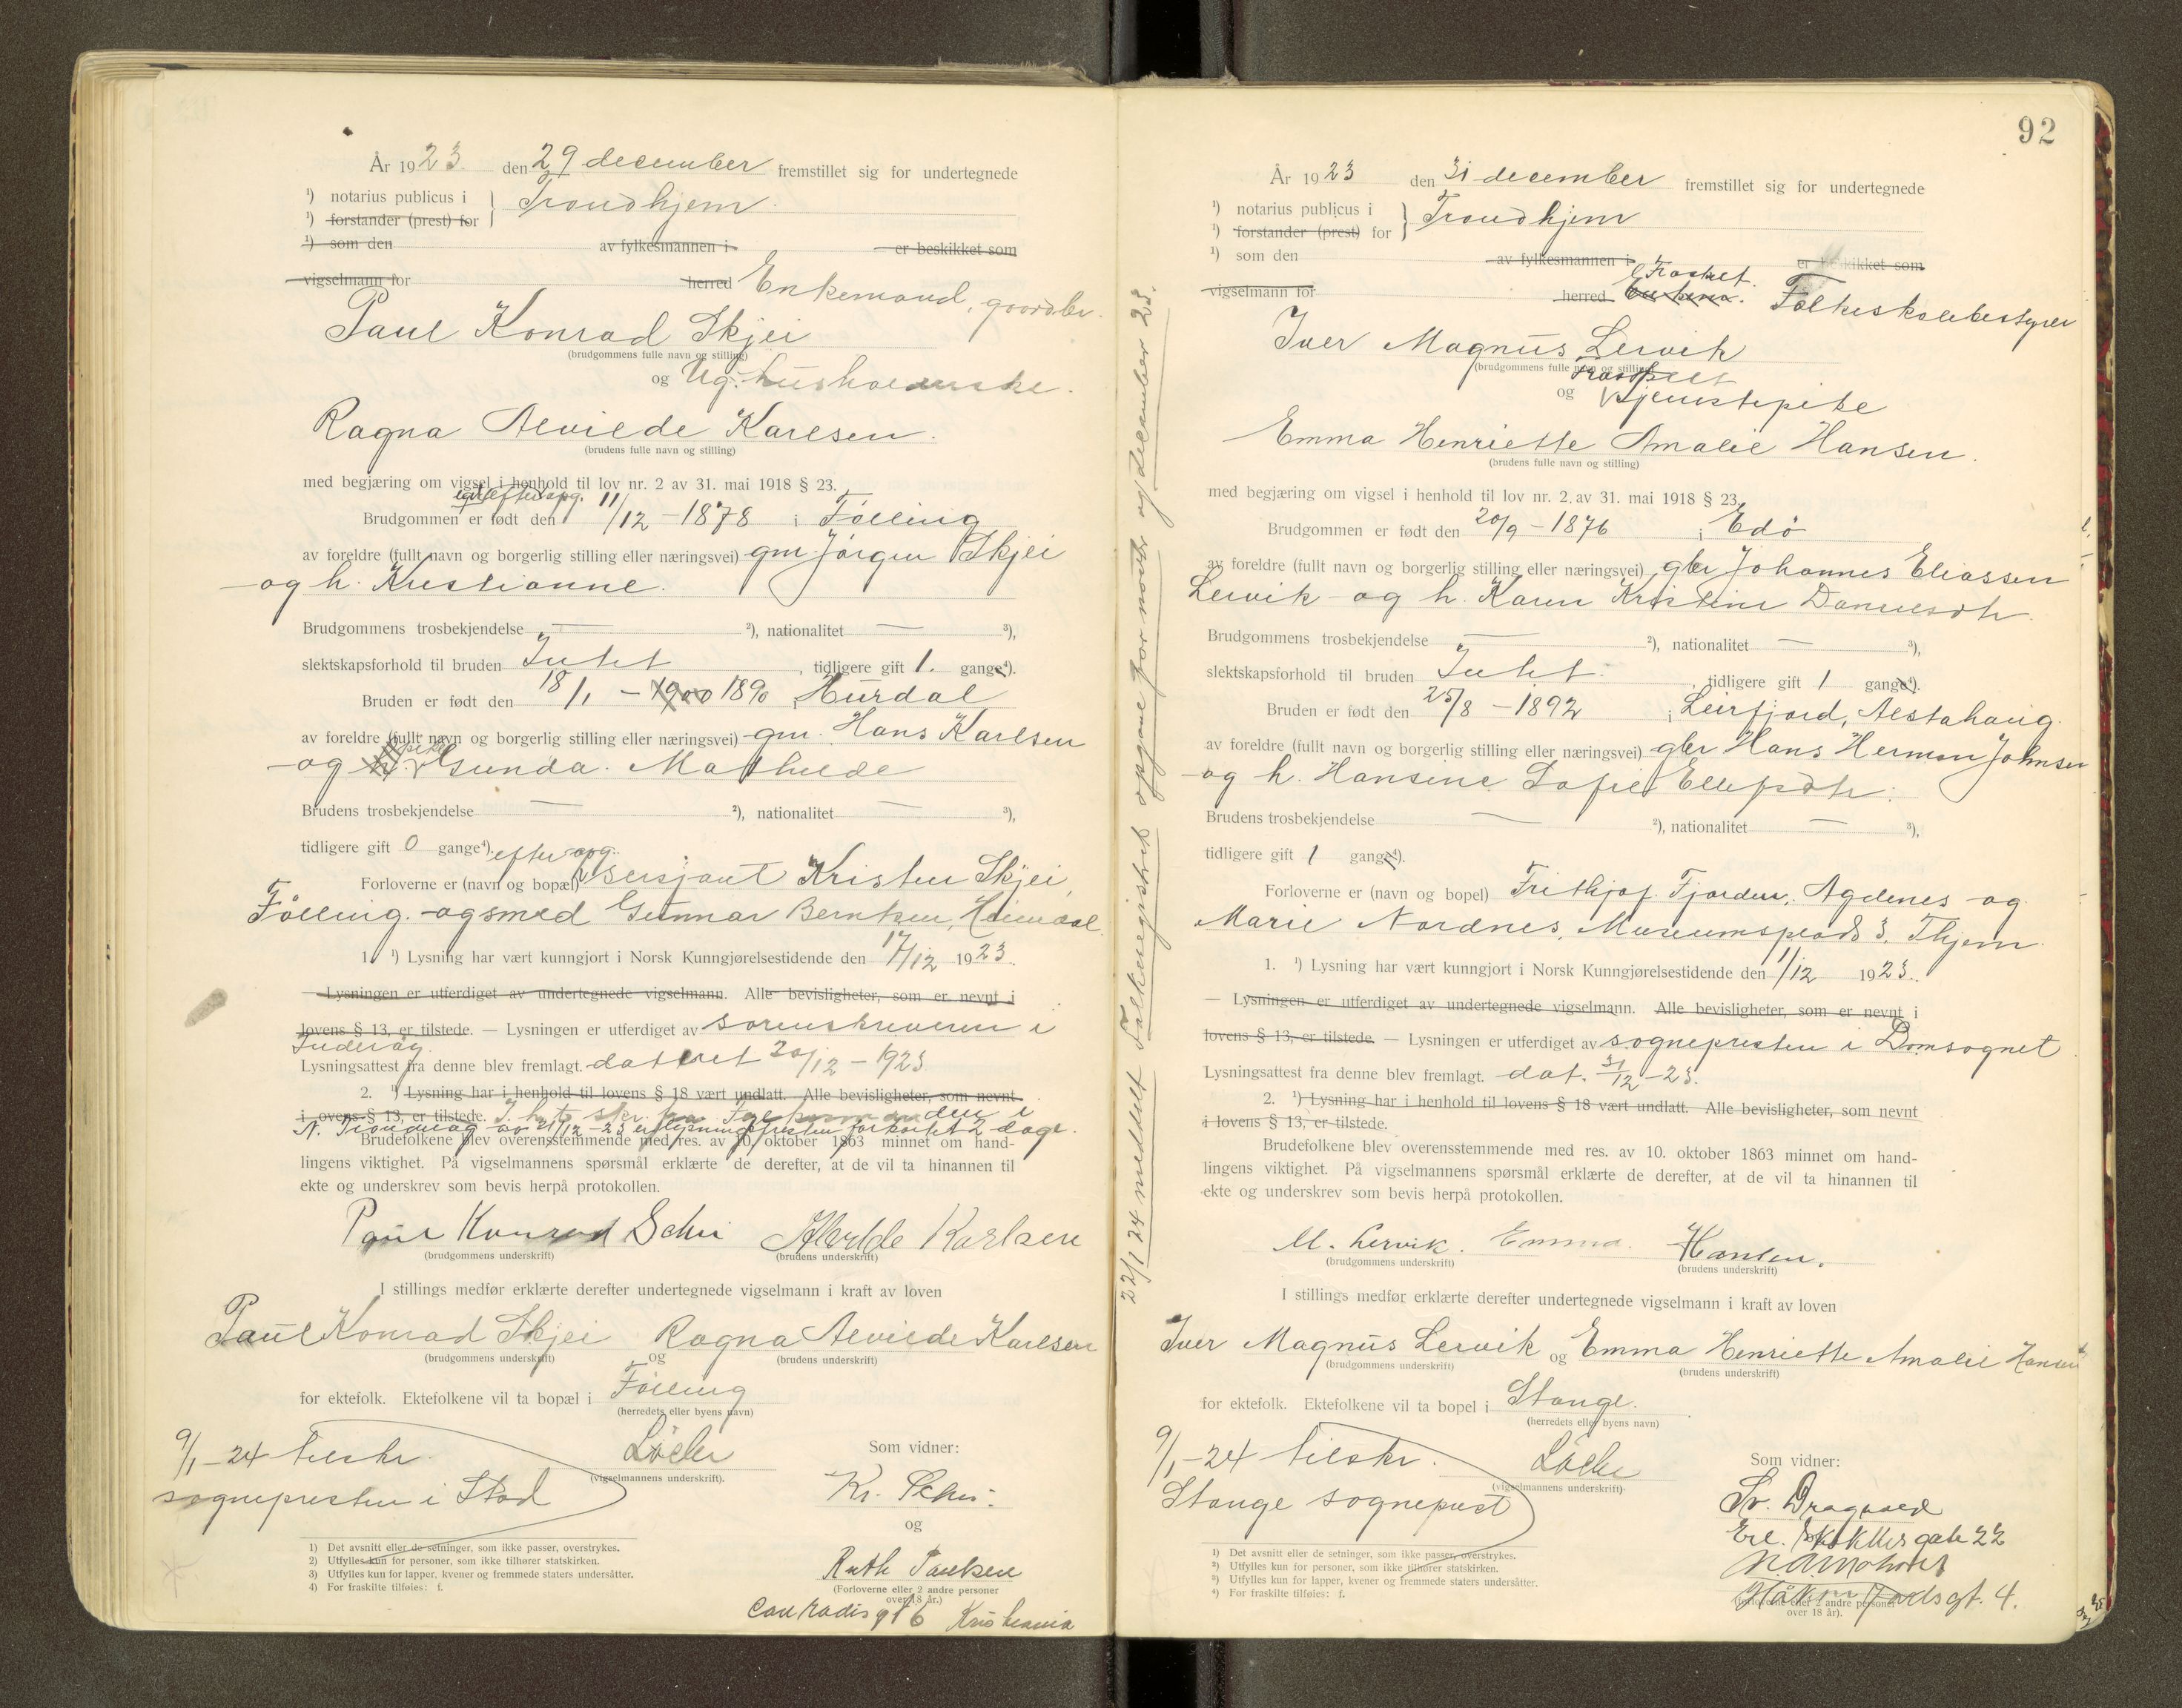 År 1923. den 29 december fremstillet sig for undertegnede
¹) notarius publicus i } Trondhjem.
¹) forstander (prest) for
¹) som den av fylkesmannen i er beskikket som
vigselmann for herred Enkemand, gaardbr.
Paul Konrad Skjei
(brudgommens fulle navn og stilling)
og Ug. husholderske.
Ragna Alvilde Karlsen.
(brudens fulle navn og stilling)
med begjæring om vigsel i henhold til lov nr. 2 av 31. mai 1918 § 23.
efter opg.
Brudgommen er født den 11/12 - 1878 i Følling
av foreldre (fullt navn og borgerlig stilling eller næringsvei) gm. Jørgen Skjei
og h. Kristianne.
Brudgommens trosbekjendelse — ²), nationalitet — ³),
slektskapsforhold til bruden Intet, tidligere gift 1. gange⁴).
Bruden er født den 18/1 - 1900 1890 i Hurdal
av foreldre (fullt navn og borgerlig stilling eller næringsvei) gm. Hans Karlsen
pike
og h. Gunda Mathilde
Brudens trosbekjendelse — ²), nationalitet — ³),
tidligere gift 0 gange⁴). efter opg.
Forloverne er (navn og bopæl) sersjant Kristen Skjei,
Følling. og smed Gunnar Berntsen, Heimdal.
1. ¹) Lysning har vært kunngjort i Norsk Kunngjørelsestidende den 17/12 1923.
Lysningen er utferdiget av undertegnede vigselmann. Alle bevisligheter, som er nevnt i
lovens § 13, er tilstede. — Lysningen er utferdiget av sorenskriveren i
Inderøy.
Lysningsattest fra denne blev fremlagt. datert 20/12 - 1923
2. ¹) Lysning har i henhold til lovens § 18 vært undlatt. Alle bevisligheter, som nevnt
i lovens § 13, er tilstede. I h. t. skr. fra Fylkesmanden i
N. Trøndelag av 21/12 - 23 er lysningsfristen forkortet 2 dage.
Brudefolkene blev overensstemmende med res. av 10. oktober 1863 minnet om hand-
lingens viktighet. På vigselmannens spørsmål erklærte de derefter, at de vil ta hinannen til
ekte og underskrev som bevis herpå protokollen.
Paul Konrad Schei Alvilde Karlsen
(brudgommens underskrift) (brudens underskrift)
I stillings medfør erklærte derefter undertegnede vigselmann i kraft av loven
Paul Konrad Skjei og Ragna Alvilde Karlsen
(brudgommens underskrift) (brudens underskrift)
for ektefolk. Ektefolkene vil ta bopæl i Følling
(herredets eller byens navn)
9/1-24 tilskr.
sognepresten i Stod
(vigselmannens underskrift).
Som vidner:
Kr. Schei.
og
Ruth Paulsen
(Forloverne eller 2 andre personer
over 18 år.)
Conradis gt 6 Kristiania
1) Det avsnitt eller de setninger, som ikke passer, overstrykes.
2) Utfylles kun for personer, som ikke tilhører statskirken.
3) Utfylles kun for lapper, kvener og fremmede staters undersåtter.
4) For fraskilte tilføies: f.
22/1 24 meddelt Folkeregistret opgave for novbr og december 23.
92
År 1923 den 31 december fremstillet sig for undertegnede
¹) notarius publicus i } Trondhjem
¹) forstander (prest) for
¹) som den av fylkesmannen i er beskikket som
Fraskilt.
vigselmann for herred Folkeskolebestyrer
Iver Magnus Lervik
(brudgommens fulle navn og stilling)
fraskilt
og tjenestepike
Emma Henriette Amalie Hansen.
(brudens fulle navn og stilling)
med begjæring om vigsel i henhold til lov nr. 2, av 31. mai 1918 § 23.
Brudgommen er født den 20/9 - 1876 i Edø
av foreldre (fullt navn og borgerlig stilling eller næringsvei) gbr Johannes Eliassen
Lervik og h. Karen Kristine Danielsdtr.
Brudgommens trosbekjendelse — ²), nationalitet — ³),
slektskapsforhold til bruden Intet, tidligere gift 1 gange⁴).
Bruden er født den 25/8 - 1892 i Leirfjord, Alstahaug.
av foreldre (fullt navn og borgerlig stilling eller næringsvei) gbr Hans Herman Johnsen
og h. Hansine Sofie Ellefsdtr.
Brudens trosbekjendelse — ²), nationalitet — ³),
tidligere gift 1 gange⁴).
Forloverne er (navn og bopel) Frithjof Fjorden, Agdenes og
Marie Nordnes, Museumsplads 3, Thjem.
1. ¹) Lysning har vært kunngjort i Norsk Kunngjørelsestidende den 1/12 1923.
— Lysningen er utferdiget av undertegnede vigselmann. Alle bevisligheter, som er nevnt i
lovens § 13, er tilstede. — Lysningen er utferdiget av sognepresten i Domsognet
Lysningsattest fra denne blev fremlagt. dat. 31/12 - 23.
2. ¹) Lysning har i henhold til lovens § 18 vært undlatt. Alle bevisligheter, som nevnt
i lovens § 13, er tilstede.
Brudefolkene blev overensstemmende med res. av 10. oktober 1863 minnet om hand-
lingens viktighet. På vigselmannens spørsmål erklærte de derefter, at de vil ta hinannen til
ekte og underskrev som bevis herpå protokollen.
M. Lervik. Emma Hansen.
(brudgommens underskrift) (brudens underskrift)
I stillings medfør erklærte derefter undertegnede vigselmann i kraft av loven
Iver Magnus Lervik og Emma Henriette Amalie Hansen
(brudgommens underskrift) (brudens underskrift)
for ektefolk. Ektefolkene vil ta bopel i Stange.
(herredets eller byens navn)
9/1-24 tilskr.
Stange sogneprest
(vigselmannens underskrift)
Som vidner:
Sv. Dragvold
gate 22
Håkon Jarlsgt. 4.
(Forloverne eller 2 andre personer
over 18 år).
¹) Det avsnitt eller de setninger, som ikke passer, overstrykes.
²) Utfylles kun for personer, som ikke tilhører statskirken.
³) Utfylles kun for lapper, kvener og fremmede staters undersåtter.
⁴) For fraskilte tilføies: f.